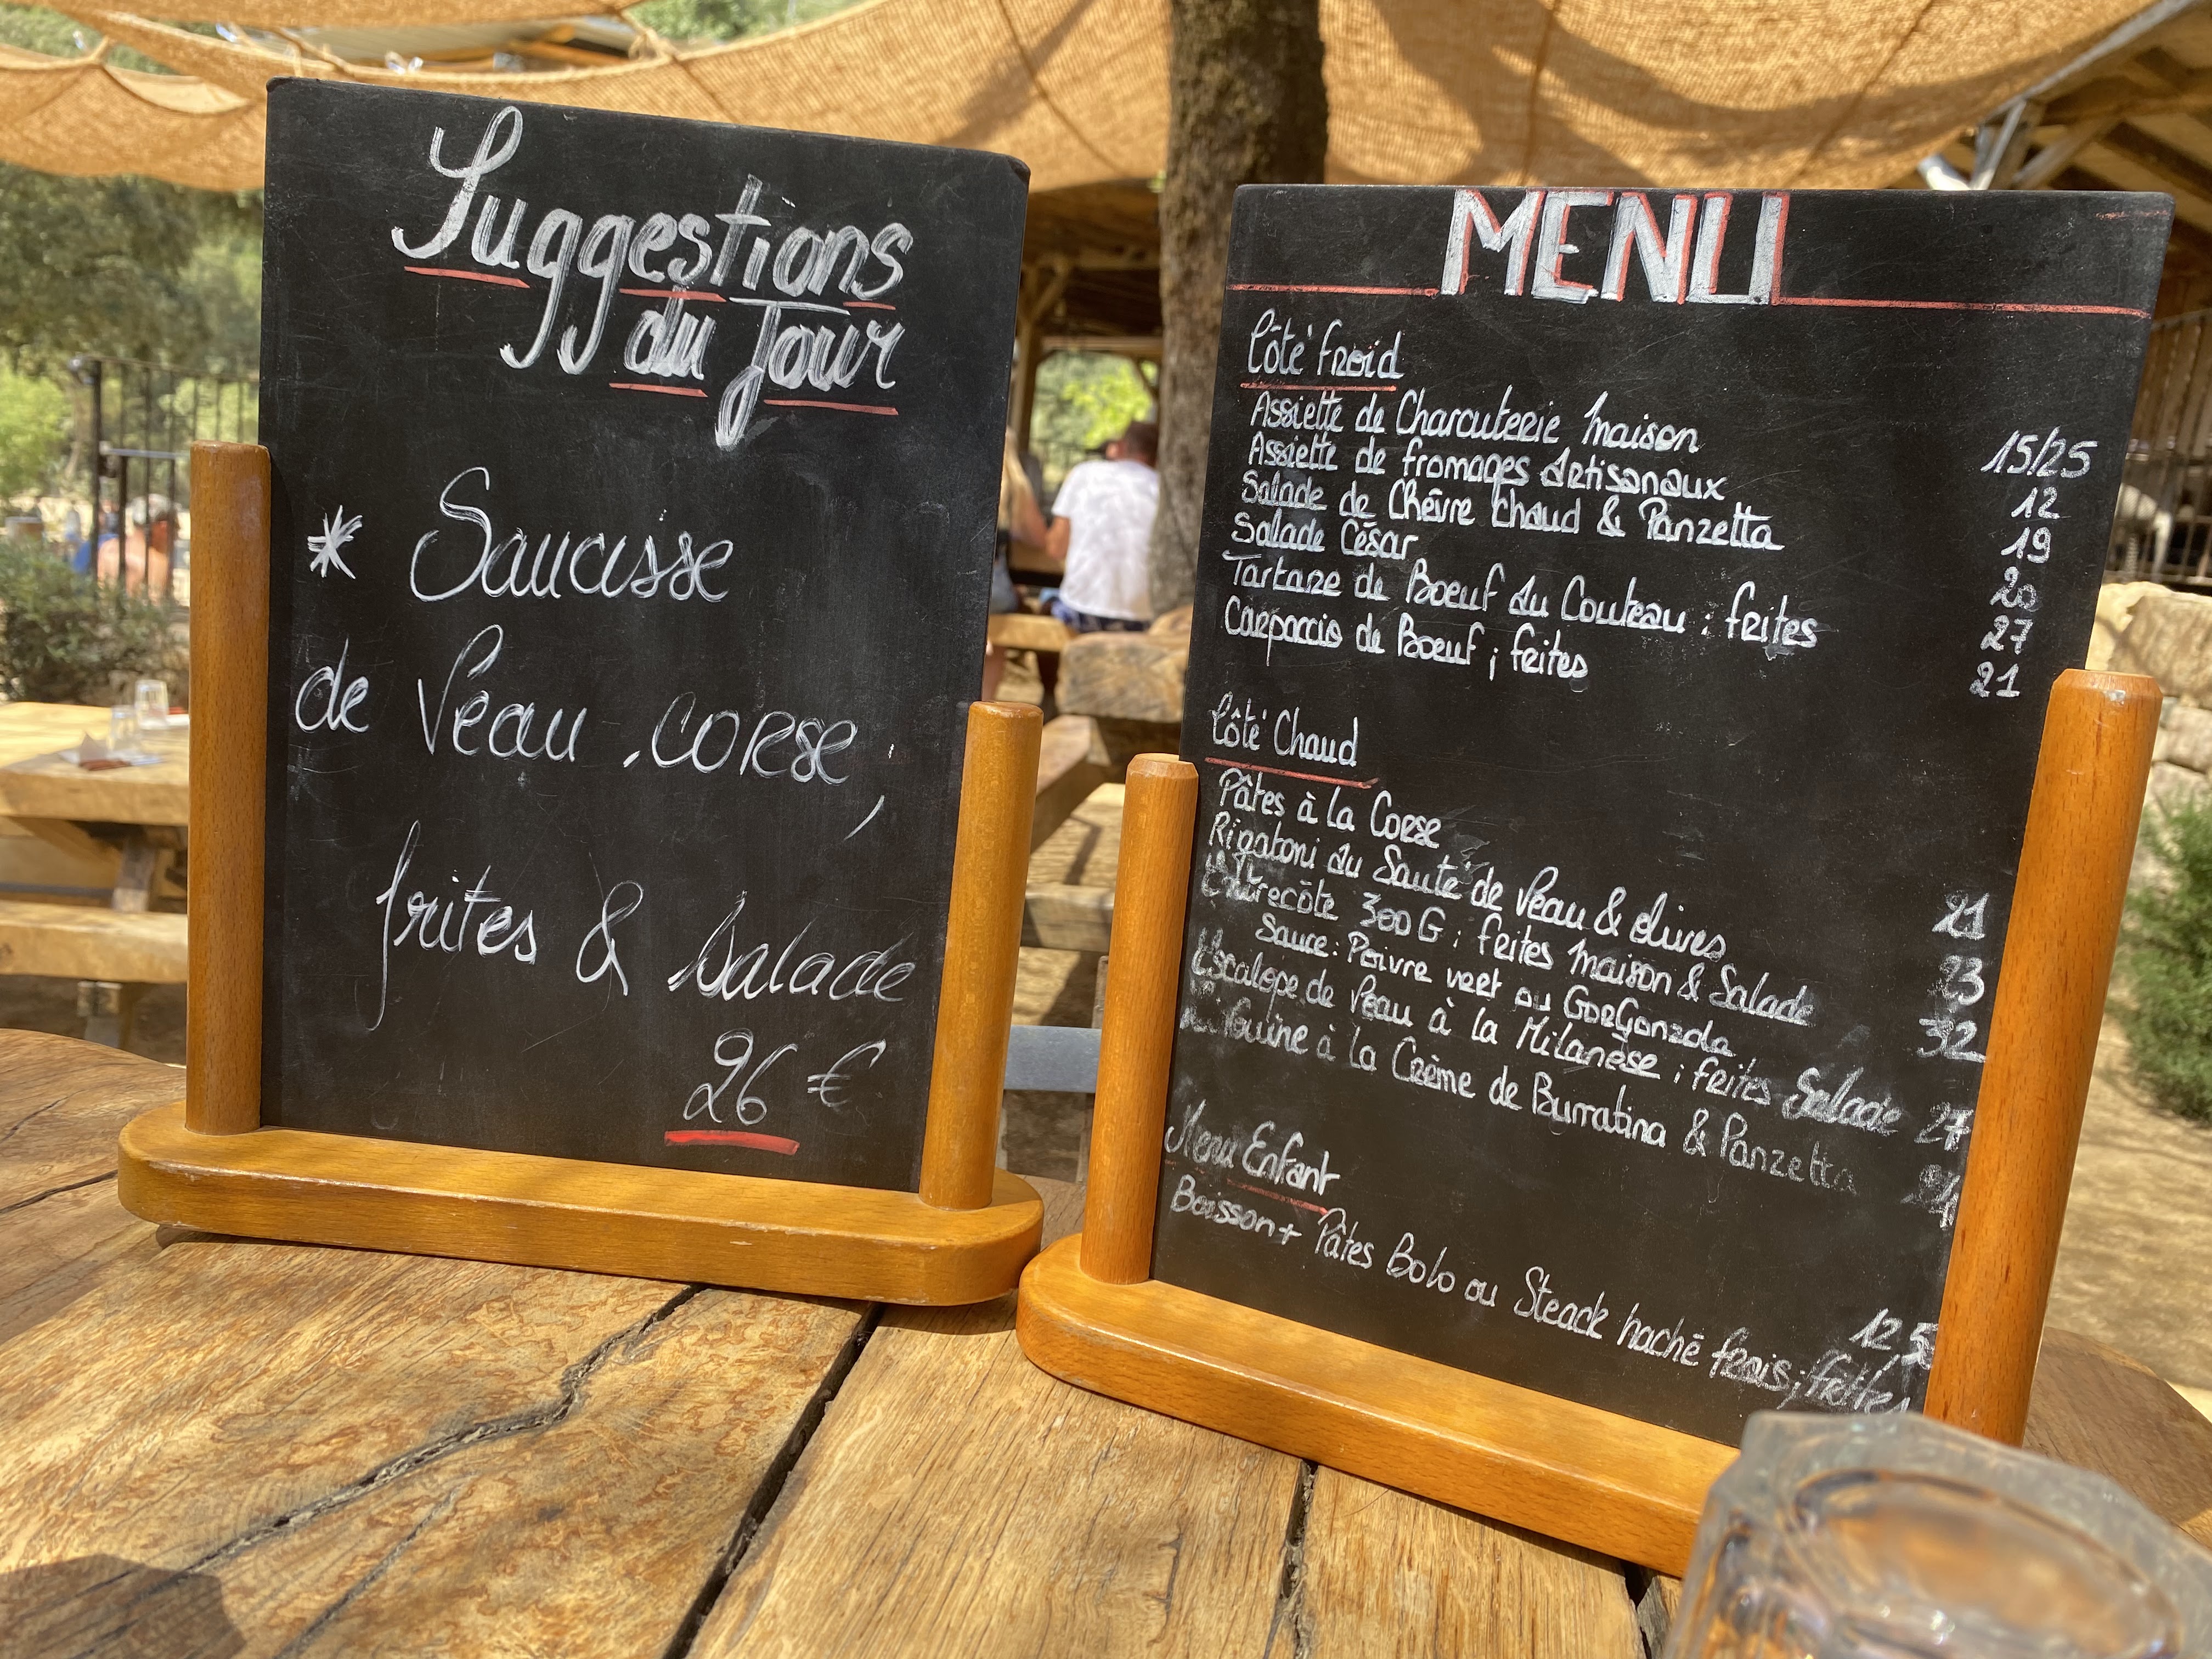 Suggestions
du Jour
* Saucisse
de Veau corse,
frites & salade
26 €
MENU
Côté froid
Assiette de Charcuterie maison 15/25
Assiette de fromages Artisanaux 12
Salade de Chèvre chaud & Panzetta 19
Salade César 20
Tartare de Boeuf au Couteau ; frites 27
Carpaccio de Boeuf ; frites 21
Côté Chaud
Pâtes à la Corse 21
Rigatoni au Sauté de Veau & olives 23
Entrecôte 300G ; frites maison & Salade 32
Sauce : Poivre vert ou GorGonzola
Escalope de Veau à la Milanèse ; frites Salade 27
Linguine à la Crème de Burratina & Panzetta 24
Menu Enfant 12,5
Boisson + Pâtes Bolo ou Steack haché frais ; frites